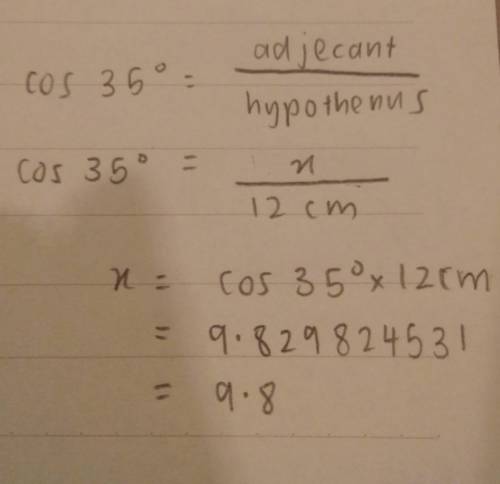 cos 35° = adjecant / hypothenus
cos 35° = x / 12 cm
x = cos 35° × 12cm
= 9.829824531
= 9.8